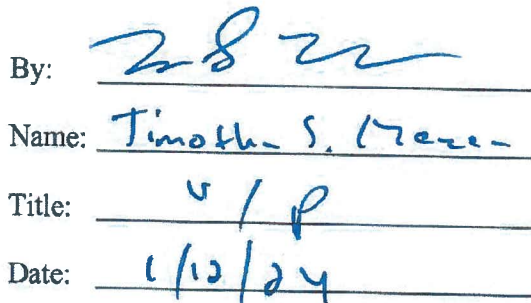 By:
Name: Timothy S.
Title: V/P
Date: 1/12/24